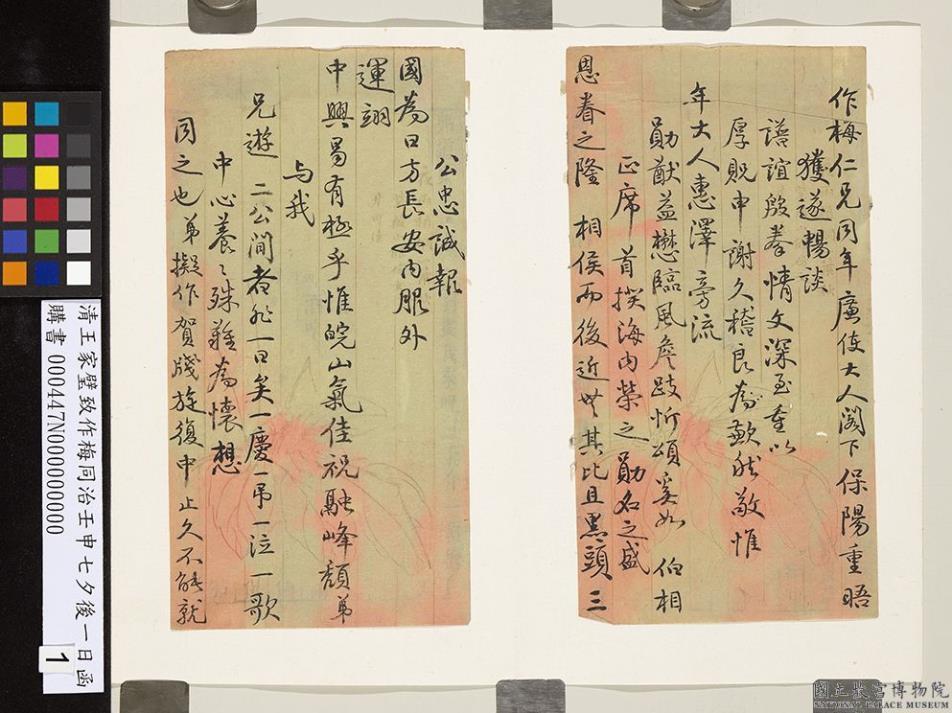 作梅仁兄同年廣使大人閣下保陽重晤
獲遂暢談
諾誼殷拳情文深至重以
厚貺申謝久稽良為歉然敬惟
年大人惠澤旁流
勛猷益懋臨風詹跂忻頌奚如 伯相
正席 首揆海內榮之勛名之盛
恩眷之隆 相侯而後近世其比且黑頭三
公忠誠報
國為日方長安內服外
運翊
中興曷有極乎惟皖山氣佳祝融峰頹弟
与我
兄遊 二公間者非一日矣一慶一弔一泣一歌
中心養〻殊難為懷想
同之也弟擬作賀牋旋復中止久不能就
清王家璧致作梅同治壬申七夕後一日函
購書 000447N000000000
1
國立故宮博物院
NATIONAL PALACE MUSEUM